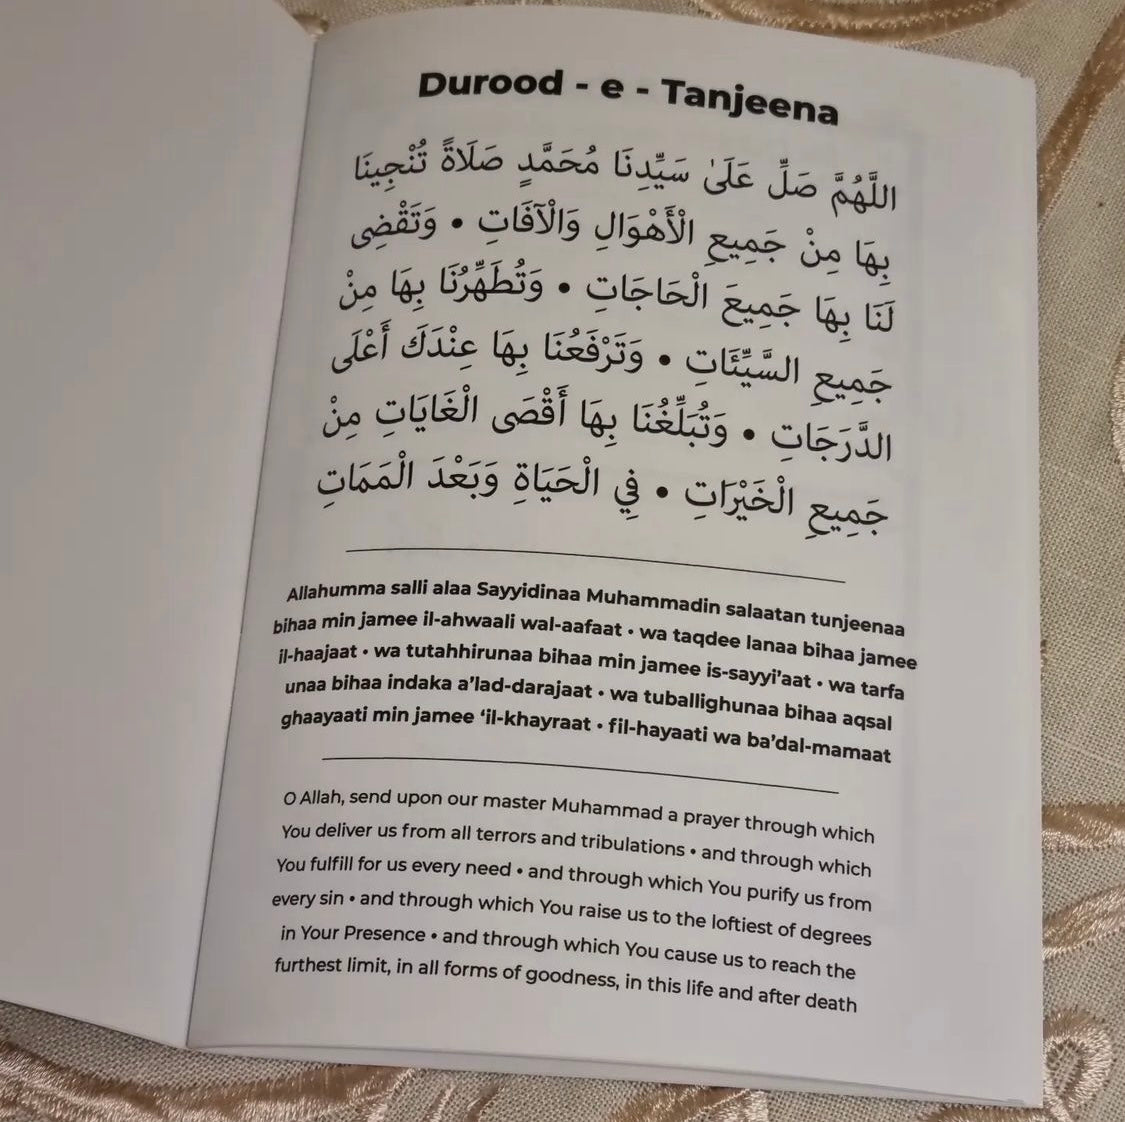 Durood - e - Tanjeena
اللَّهُمَّ صَلِّ عَلَىٰ سَيِّدِنَا مُحَمَّدٍ صَلَاةً تُنْجِينَا
بِهَا مِنْ جَمِيعِ الْأَهْوَالِ وَالْآفَاتِ • وَتَقْضِى
لَنَا بِهَا جَمِيعَ الْحَاجَاتِ • وَتُطَهِّرُنَا بِهَا مِنْ
جَمِيعِ السَّيِّئَاتِ • وَتَرْفَعُنَا بِهَا عِنْدَكَ أَعْلَى
الدَّرَجَاتِ • وَتُبَلِّغُنَا بِهَا أَقْصَى الْغَايَاتِ مِنْ
جَمِيعِ الْخَيْرَاتِ • فِي الْحَيَاةِ وَبَعْدَ الْمَمَاتِ
Allahumma salli alaa Sayyidinaa Muhammadin salaatan tunjeenaa
bihaa min jamee il-ahwaali wal-aafaat • wa taqdee lanaa bihaa jamee
il-haajaat • wa tutahhirunaa bihaa min jamee is-sayyi’aat • wa tarfa
unaa bihaa indaka a’lad-darajaat • wa tuballighunaa bihaa aqsal
ghaayaati min jamee ‘il-khayraat • fil-hayaati wa ba’dal-mamaat
O Allah, send upon our master Muhammad a prayer through which
You deliver us from all terrors and tribulations • and through which
You fulfill for us every need • and through which You purify us from
every sin • and through which You raise us to the loftiest of degrees
in Your Presence • and through which You cause us to reach the
furthest limit, in all forms of goodness, in this life and after death